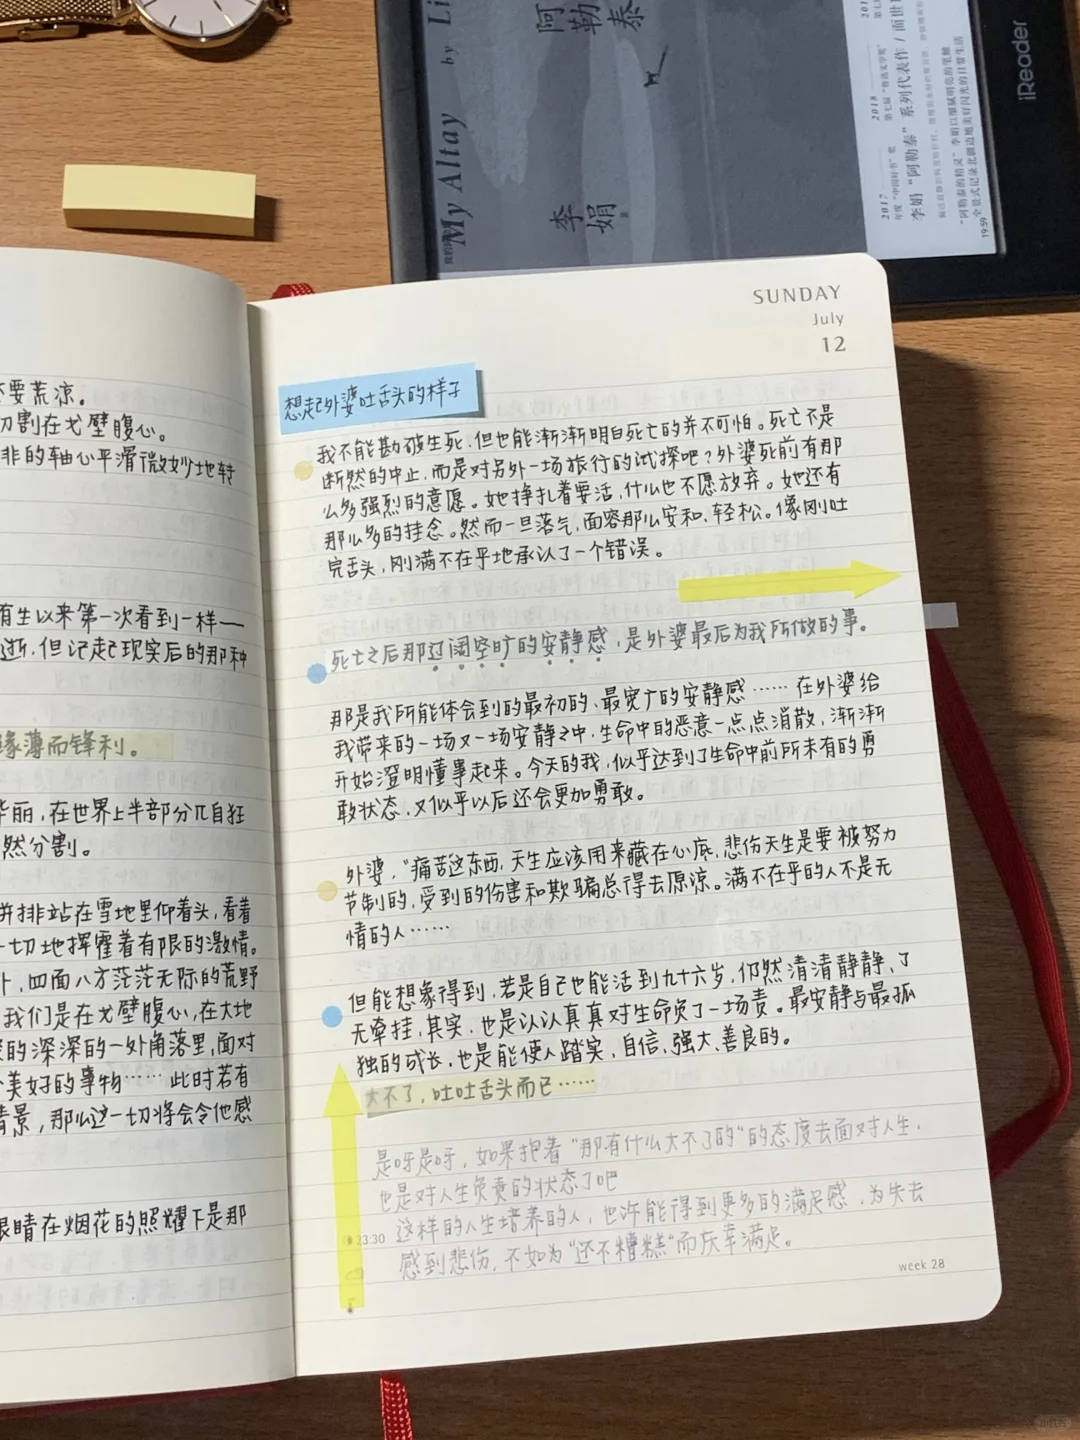 My Altay by Li
阿勒泰
李娟
2017
2018
李娟“阿勒泰”系列代表作
19:59
iReader
还要荒凉。
切割在戈壁腹心。
非的轴心平滑微妙地转
有生以来第一次看到一样——
逝，但记起现实后的那种
缘薄而锋利。
华丽，在世界上半部分兀自狂
然分割。
并排站在雪地里仰着头，看着
一切地挥霍着有限的激情。
外，四面八方茫茫无际的荒野
我们是在戈壁腹心，在大地
的深深的一处角落里，面对
美好的事物……此时若有
情景，那么这一切将会令他感
眼睛在烟花的照耀下是那
SUNDAY
July
12
想起外婆吐舌头的样子
我不能勘破生死，但也能渐渐明白死亡的并不可怕。死亡不是
断然的中止，而是对另外一场旅行的试探吧？外婆死前有那
么多强烈的意愿。她挣扎着要活，什么也不愿放弃。她还有
那么多的挂念。然而一旦落气，面容那么安和、轻松。像刚吐
完舌头，刚满不在乎地承认了一个错误。
死亡之后那辽阔空旷的安静感，是外婆最后为我所做的事。
那是我所能体会到的最初的、最宽广的安静感……在外婆给
我带来的一场又一场安静之中，生命中的恶意一点点消散，渐渐
开始澄明懂事起来。今天的我，似乎达到了生命中前所未有的勇
敢状态，又似乎以后还会更加勇敢。
外婆，“痛苦这东西，天生应该用来藏在心底，悲伤天生是要被努力
节制的，受到的伤害和欺骗总得去原谅。满不在乎的人不是无
情的人……
但能想象得到，若是自己也能活到九十六岁，仍然清清静静、了
无牵挂，其实，也是认认真真对生命负了一场责。最安静与最孤
独的成长，也是能使人踏实、自信、强大、善良的。
大不了，吐吐舌头而已……
是呀是呀，如果抱着“那有什么大不了的”的态度去面对人生，
也是对人生负责的状态了吧
这样的人生培养的人，也许能得到更多的满足感，为失去
感到悲伤，不如为“还不糟糕”而庆幸满足。
23:30
week 28